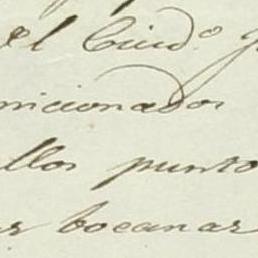 el Ciud.º
nicionados
llos punto
bocanas